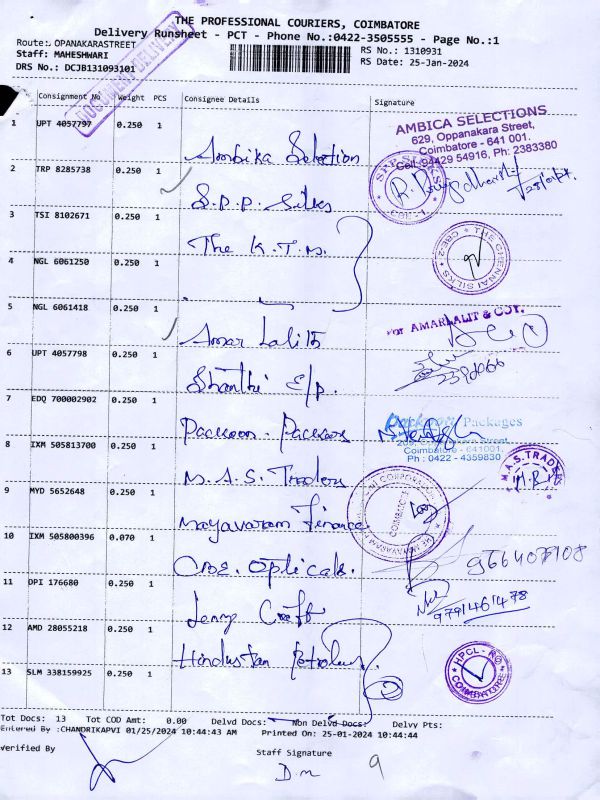 THE PROFESSIONAL COURIERS, COIMBATORE
Delivery Runsheet - PCT - Phone No.:0422-3505555 - Page No.:1
Route: OPANAKARASTREET
RS No.: 1310931
Staff: MAHESHWARI
RS Date: 25-Jan-2024
DRS No.: DCJB131093101
DOCUMENT DELIVERY
Consignment No Weight PCS Consignee Details Signature
1 UPT 4057797 0.250 1 Ambika Selection
AMBICA SELECTIONS
629, Oppanakara Street,
Coimbatore - 641 001.
Cell: 94429 54916, Ph: 2383380
2 TRP 8285738 0.250 1 S.P.P. Silks
S.P.P. SILKS
CBE-1
3 TSI 8102671 0.250 1 The K.T.M.
THE CHENNAI SILKS
CBE-2
4 NGL 6061250 0.250 1
5 NGL 6061418 0.250 1 Amar Lalith
For AMARLALIT & COY.
6 UPT 4057798 0.250 1 Shanthi E/p.
7 EDQ 700002902 0.250 1 Packson Packers
Packages
Coimbatore - 641001.
Ph : 0422 - 4359830
8 IXM 505813700 0.250 1 M.A.S. Traders
M.A.S. TRADERS
9 MYD 5652648 0.250 1 Mayavaram Finance
COIMBATORE
10 IXM 505800396 0.070 1 Cbe. Opticals.
11 DPI 176680 0.250 1 Jenny Craft
9791461478
12 AMD 28055218 0.250 1 Hindustan Petroleum
HPCL - RO
COIMBATORE
13 SLM 338159925 0.250 1
2
Tot Docs: 13 Tot COD Amt: 0.00 Delvd Docs: Non Delvd Docs: Delvy Pts:
Entered By :CHANDRIKAPVI 01/25/2024 10:44:43 AM Printed On: 25-01-2024 10:44:44
Verified By Staff Signature
D.M 9